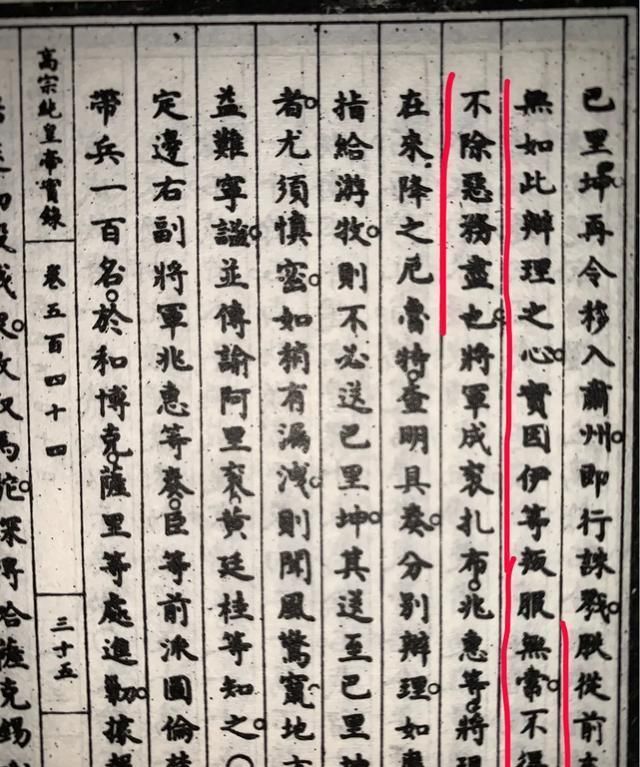 巴里坤。再令移入肅州。即行誅戮。朕從前
無如此辦理之心。實因伊等叛服無常。不得
不除惡務盡也。將軍成衮扎布。兆惠等。將現
在來降之厄魯特。查明具奏。分別辦理。如
指給游牧。則不必送巴里坤。其送至巴里坤
者。尤須慎密。如稍有漏洩。則聞風驚竄。地方
益難寧謐。並傳諭阿里衮。黃廷桂等知之。〇
定邊右副將軍兆惠等奏。臣等前派圖倫楚
帶兵一百名。於和博克。薩里等處進勦。據
高宗純皇帝實錄 卷五百四十四 三十五
深得哈薩克錫